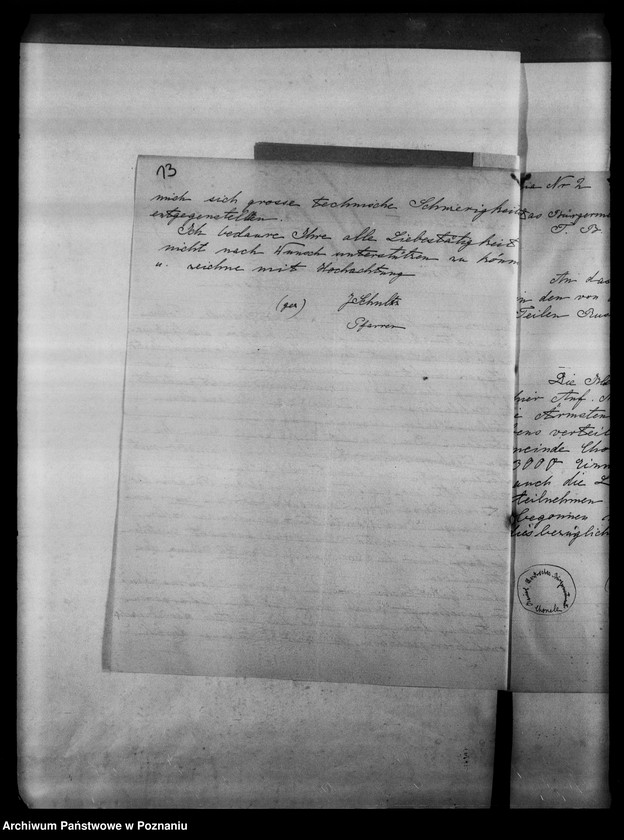 13
mich sich grosse technische Schwierigkeit
entgegenstellen.
Ich bedaure Ihre alle Liebestätigkeit
nicht nach Wunsch unterstützen zu könn
u. zeichne mit Hochachtung
(gez) J Schultz
Pfarrer
No 2
das Bürgerm
An das
in den von
Teilen
Die
hier Anf.
Armsten
ens verteil
meinde
3000
auch die
teilnehmen
begonnen
diesbezüglich
Archiwum Państwowe w Poznaniu